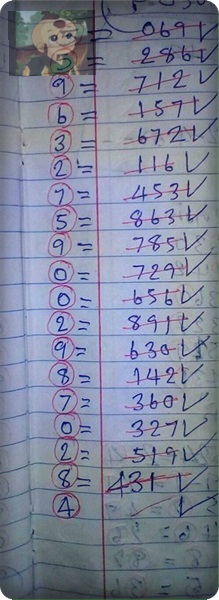 = 069 ✓
5 = 286 ✓
9 = 712 ✓
6 = 157 ✓
3 = 672 ✓
2 = 116 ✓
7 = 453 ✓
5 = 863 ✓
9 = 785 ✓
0 = 729 ✓
0 = 656 ✓
2 = 891 ✓
9 = 630 ✓
8 = 142 ✓
7 = 360 ✓
0 = 327 ✓
2 = 519 ✓
8 = 431 ✓
4 ✓